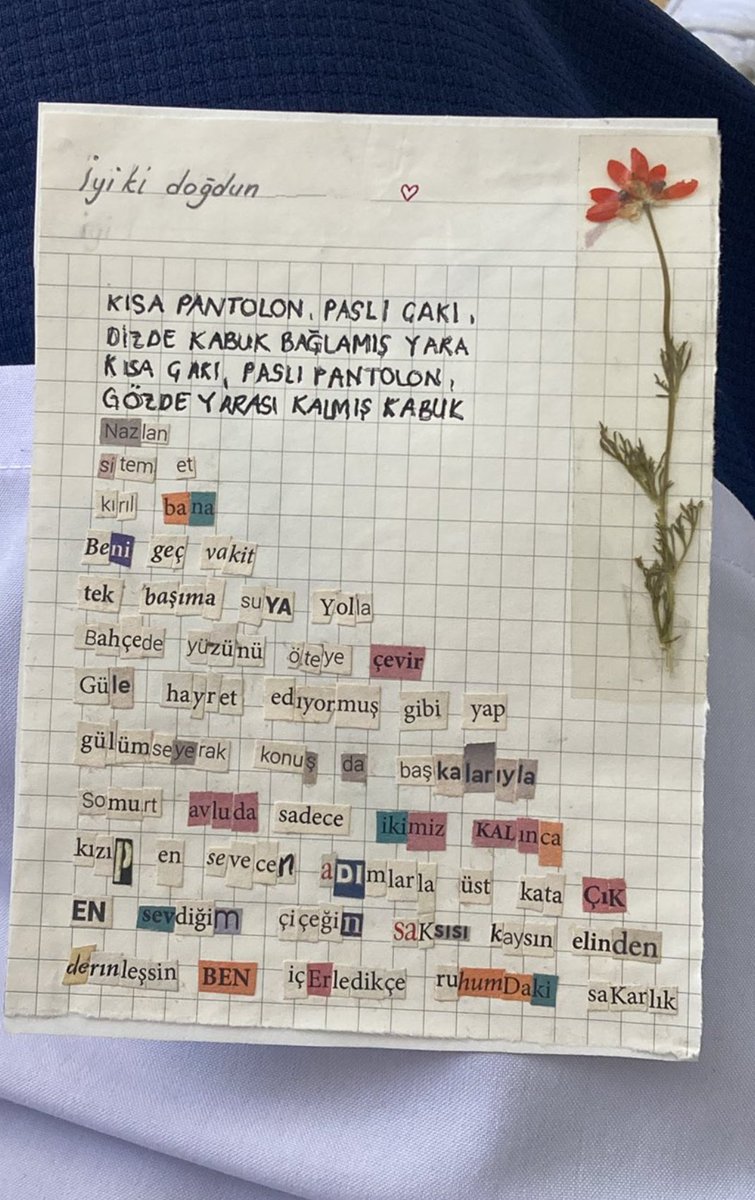 iyi ki doğdun
KISA PANTOLON, PASLI ÇAKI,
DİZDE KABUK BAĞLAMIŞ YARA
KISA ÇAKI, PASLI PANTOLON,
GÖZDE YARASI KALMIŞ KABUK
Nazlan
sitem et
kırıl bana
Beni geç vakit
tek başıma suYA Yolla
Bahçede yüzünü öteye çevir
Güle hayret edıyormuş gibi yap
gülümseyerak konuş da başkalarıyla
Somurt avluda sadece ikimiz KALınca
kızıp en sevecen aDImlarla üst kata ÇıK
EN sevdiğim çiçeğin saKsısı kaysın elinden
derınleşsin BEN içErledikçe ruhumDaki saKarlık